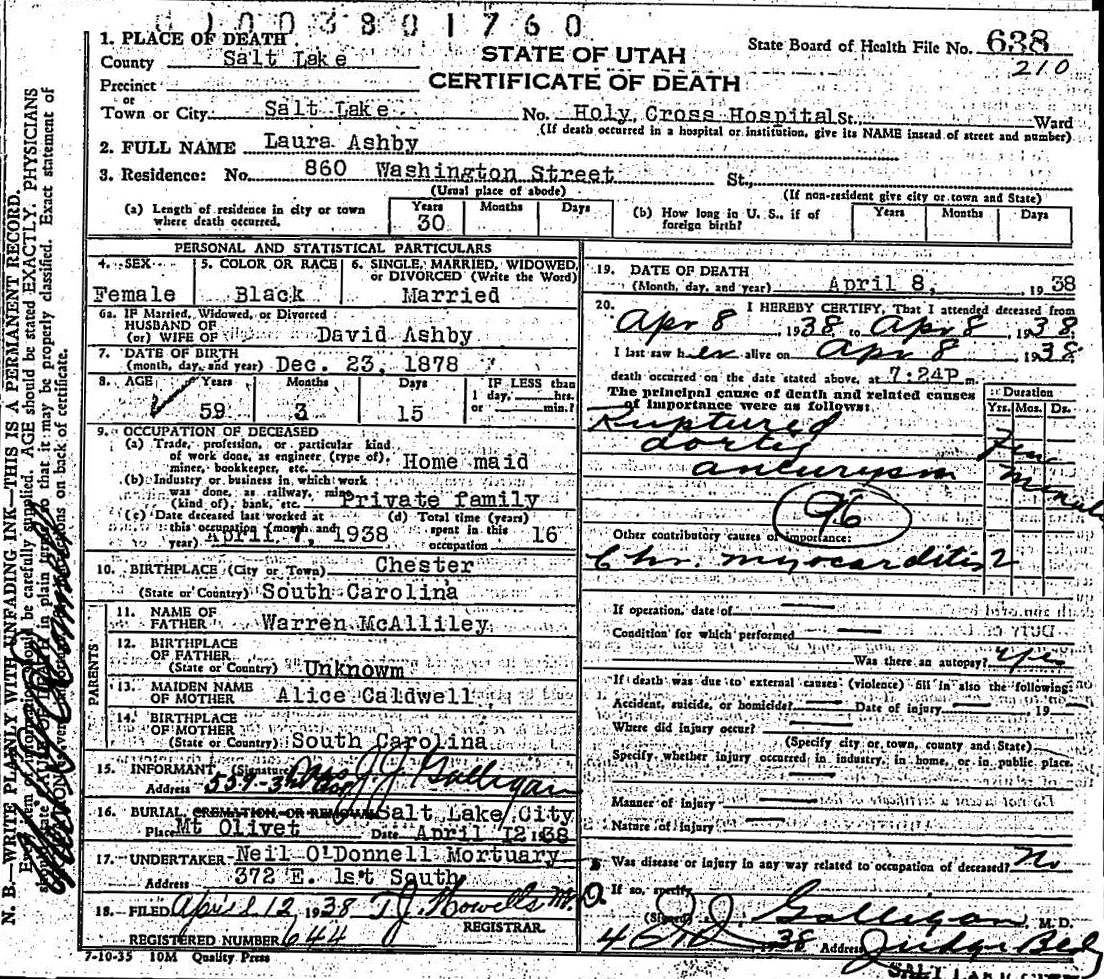 01003801760
1. PLACE OF DEATH
County Salt Lake
Precinct
or
Town or City Salt Lake
STATE OF UTAH
CERTIFICATE OF DEATH
State Board of Health File No. 638
210
No. Holy Cross Hospital St., Ward
(If death occurred in a hospital or institution, give its NAME instead of street and number)
2. FULL NAME Laura Ashby
3. Residence: No. 860 Washington Street St.,
(Usual place of abode) (If non-resident give city or town and State)
(a) Length of residence in city or town where death occurred. Years 30 Months Days
(b) How long in U. S., if of foreign birth? Years Months Days
PERSONAL AND STATISTICAL PARTICULARS
4. SEX Female
5. COLOR OR RACE Black
6. SINGLE, MARRIED, WIDOWED, or DIVORCED (Write the Word) Married
6a. IF Married, Widowed, or Divorced
HUSBAND OF
(or) WIFE OF David Ashby
7. DATE OF BIRTH
(month, day, and year) Dec. 23, 1878
8. AGE Years 59 Months 3 Days 15
IF LESS than 1 day, hrs. or min.?
9. OCCUPATION OF DECEASED
(a) Trade, profession, or particular kind
of work done, as engineer (type of),
miner, bookkeeper, etc. Home maid
(b) Industry or business in which work
was done, as railway, mine
(kind of), bank, etc. Private family
(c) Date deceased last worked at
this occupation (month and
year) April 7, 1938
(d) Total time (years)
spent in this
occupation 16
10. BIRTHPLACE (City or Town) Chester
(State or Country) South Carolina
PARENTS
11. NAME OF
FATHER Warren McAlliley
12. BIRTHPLACE
OF FATHER
(State or Country) Unknowm
13. MAIDEN NAME
OF MOTHER Alice Caldwell
14. BIRTHPLACE
OF MOTHER
(State or Country) South Carolina
15. INFORMANT (Signature) Mrs J. J. Galligan
Address 559-3rd Ave
16. BURIAL, CREMATION, OR REMOVAL Salt Lake City
Place Mt Olivet Date April 12 1938
17. UNDERTAKER Neil O'Donnell Mortuary
Address 372 E. 1st South
18. FILED April 12, 1938 T. J. Howells M.D.
REGISTRAR.
REGISTERED NUMBER 644
7-10-35 10M Quality Press
19. DATE OF DEATH
(Month, day, and year) April 8, 1938
20. I HEREBY CERTIFY, That I attended deceased from
Apr 8, 1938 to Apr 8, 1938.
I last saw her alive on Apr 8 1938
death occurred on the date stated above, at 7:24P m.
The principal cause of death and related causes
of importance were as follows:
Duration
Yrs. Mos. Ds.
Ruptured
aortic
aneurysm
Few
96
Other contributory causes of importance:
Chr. myocarditis 2
If operation, date of
Condition for which performed
Was there an autopsy? yes
If death was due to external causes (violence) fill in also the following:
Accident, suicide, or homicide? Date of injury 19
Where did injury occur?
(Specify city or town, county and State)
Specify whether injury occurred in industry, in home, or in public place.
Manner of injury
Nature of injury
Was disease or injury in any way related to occupation of deceased? No
If so, specify
(Signed) J. J. Galligan, M. D.
1938 Address Judge Bldg
SALT LAKE
N. B.—WRITE PLAINLY WITH UNFADING INK—THIS IS A PERMANENT RECORD.
AGE should be stated EXACTLY. PHYSICIANS
so that it may be properly classified. Exact statement of
on back of certificate.